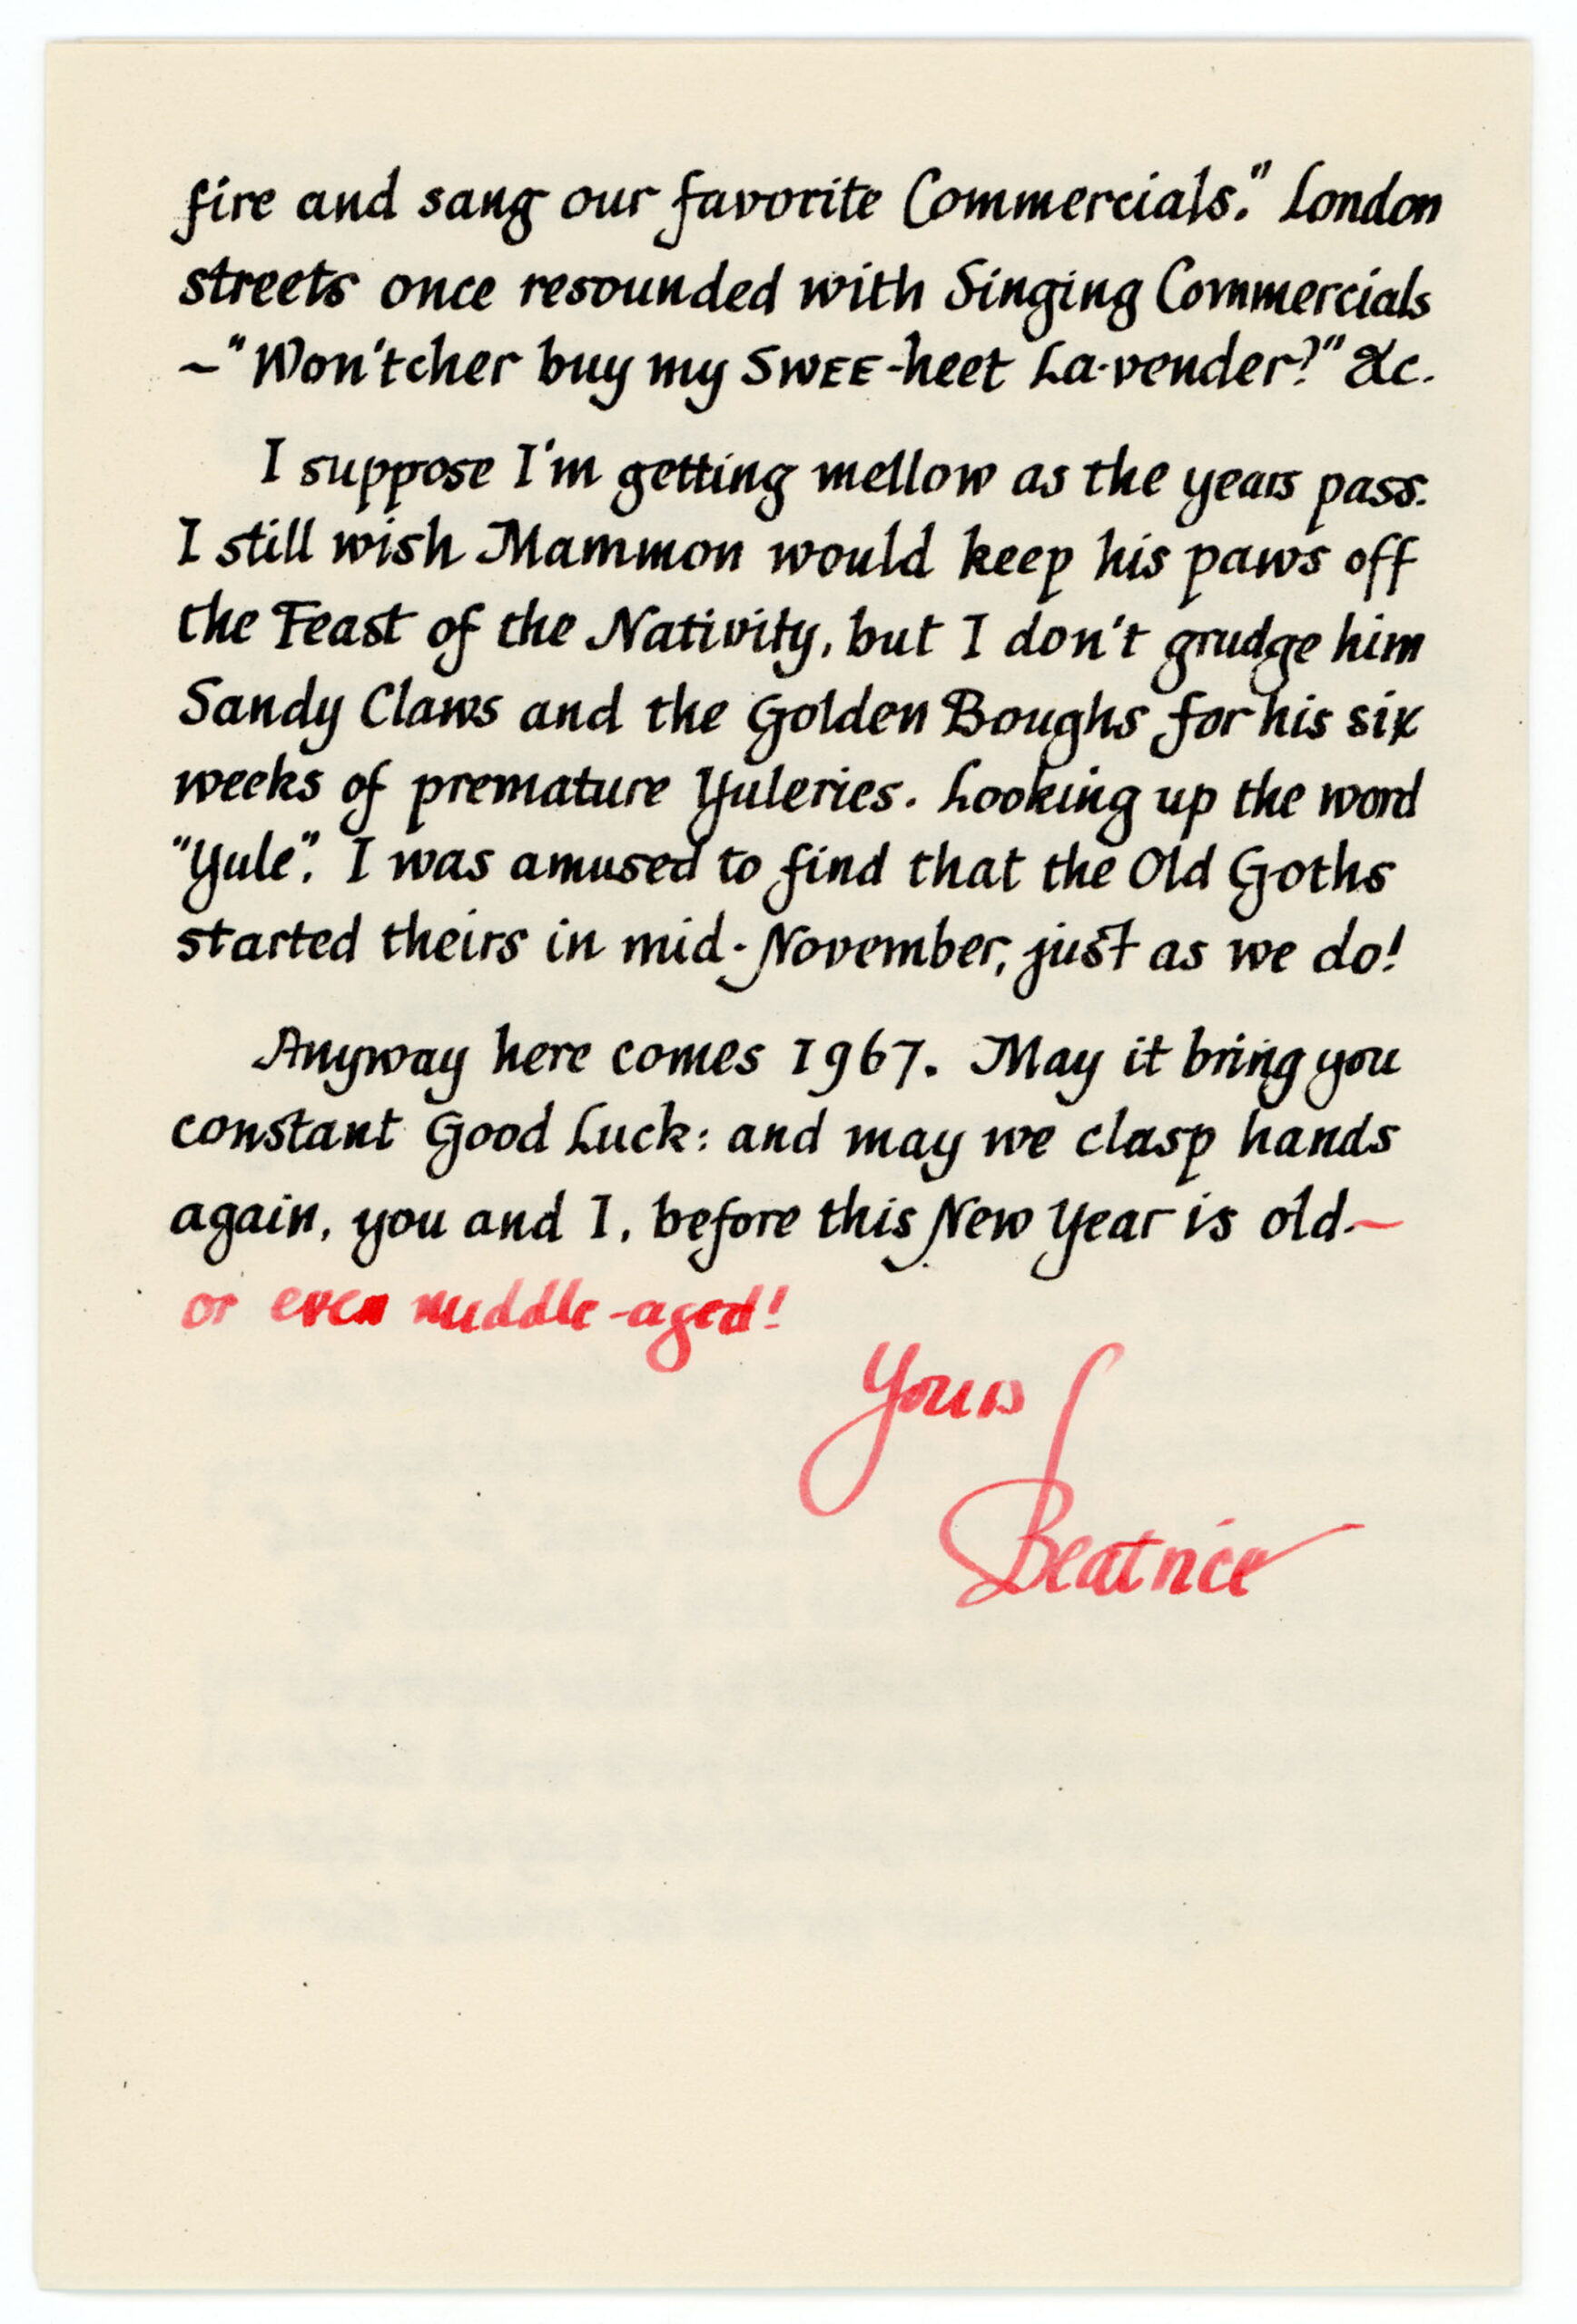 fire and sang our favorite Commercials." London
streets once resounded with Singing Commercials
~"Won'tcher buy my SWEE-heet La-vender?" &c.
I suppose I'm getting mellow as the years pass.
I still wish Mammon would keep his paws off
the Feast of the Nativity, but I don't grudge him
Sandy Claws and the Golden Boughs for his six
weeks of premature Yuleries. Looking up the word
"Yule". I was amused to find that the Old Goths
started theirs in mid-November, just as we do!
Anyway here comes 1967. May it bring you
constant Good Luck: and may we clasp hands
again, you and I, before this New Year is old—
or even middle-aged!
Yours
Beatrice